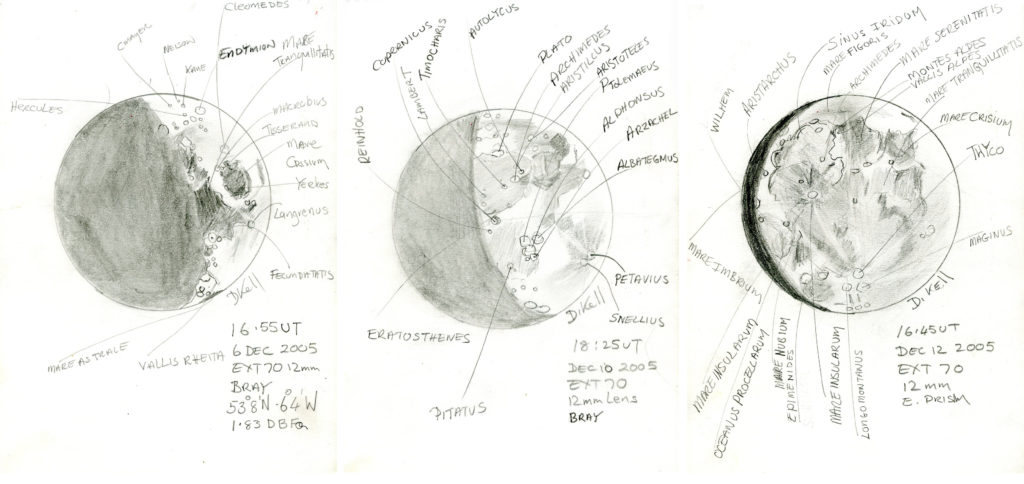 CLEOMEDES
NELSON
KANE
ENDYMION MARE
TRANQUILLITATIS
HERCULES
MACROBIUS
TISSERAND
MARE
CRISIUM
Yerkes
Langrenus
FECUNDITATIS
D.Kell
MARE ASTRALE
VALLIS RHEITA
16·55UT
6 DEC 2005
EXT 70 12mm
BRAY
53°8'N -6°4'W
AUTOLYCUS
COPERNICUS
TIMOCHARIS
LAMBERT
REINHOLD
PLATO
ARCHIMEDES
ARISTILLUS
ARISTOTELES
PTOLEMAEUS
ALPHONSUS
ARZACHEL
ALBATEGMUS
PETAVIUS
SNELLIUS
ERATOSTHENES
PITATUS
D.Kell
18:25UT
DEC 10 2005
EXT 70
12mm Lens
BRAY
SINUS IRIDUM
MARE FIGORIS
ARCHIMEDES
MARE SERENITATIS
MONTES ALPES
VALLIS ALPES
MARE TRANQUILITATIS
ARISTARCHUS
WILHEM
MARE CRISIUM
THYCO
MAGINUS
MARE IMBRIUM
MARE INSULARUM
OCEANUS PROCELLARUM
MARE NUBIUM
EPIMENIDES
MARE INSULARUM
LONGOMONTANUS
D.Kell
16:45UT
DEC 12 2005
EXT 70
12 mm
E. PRISM